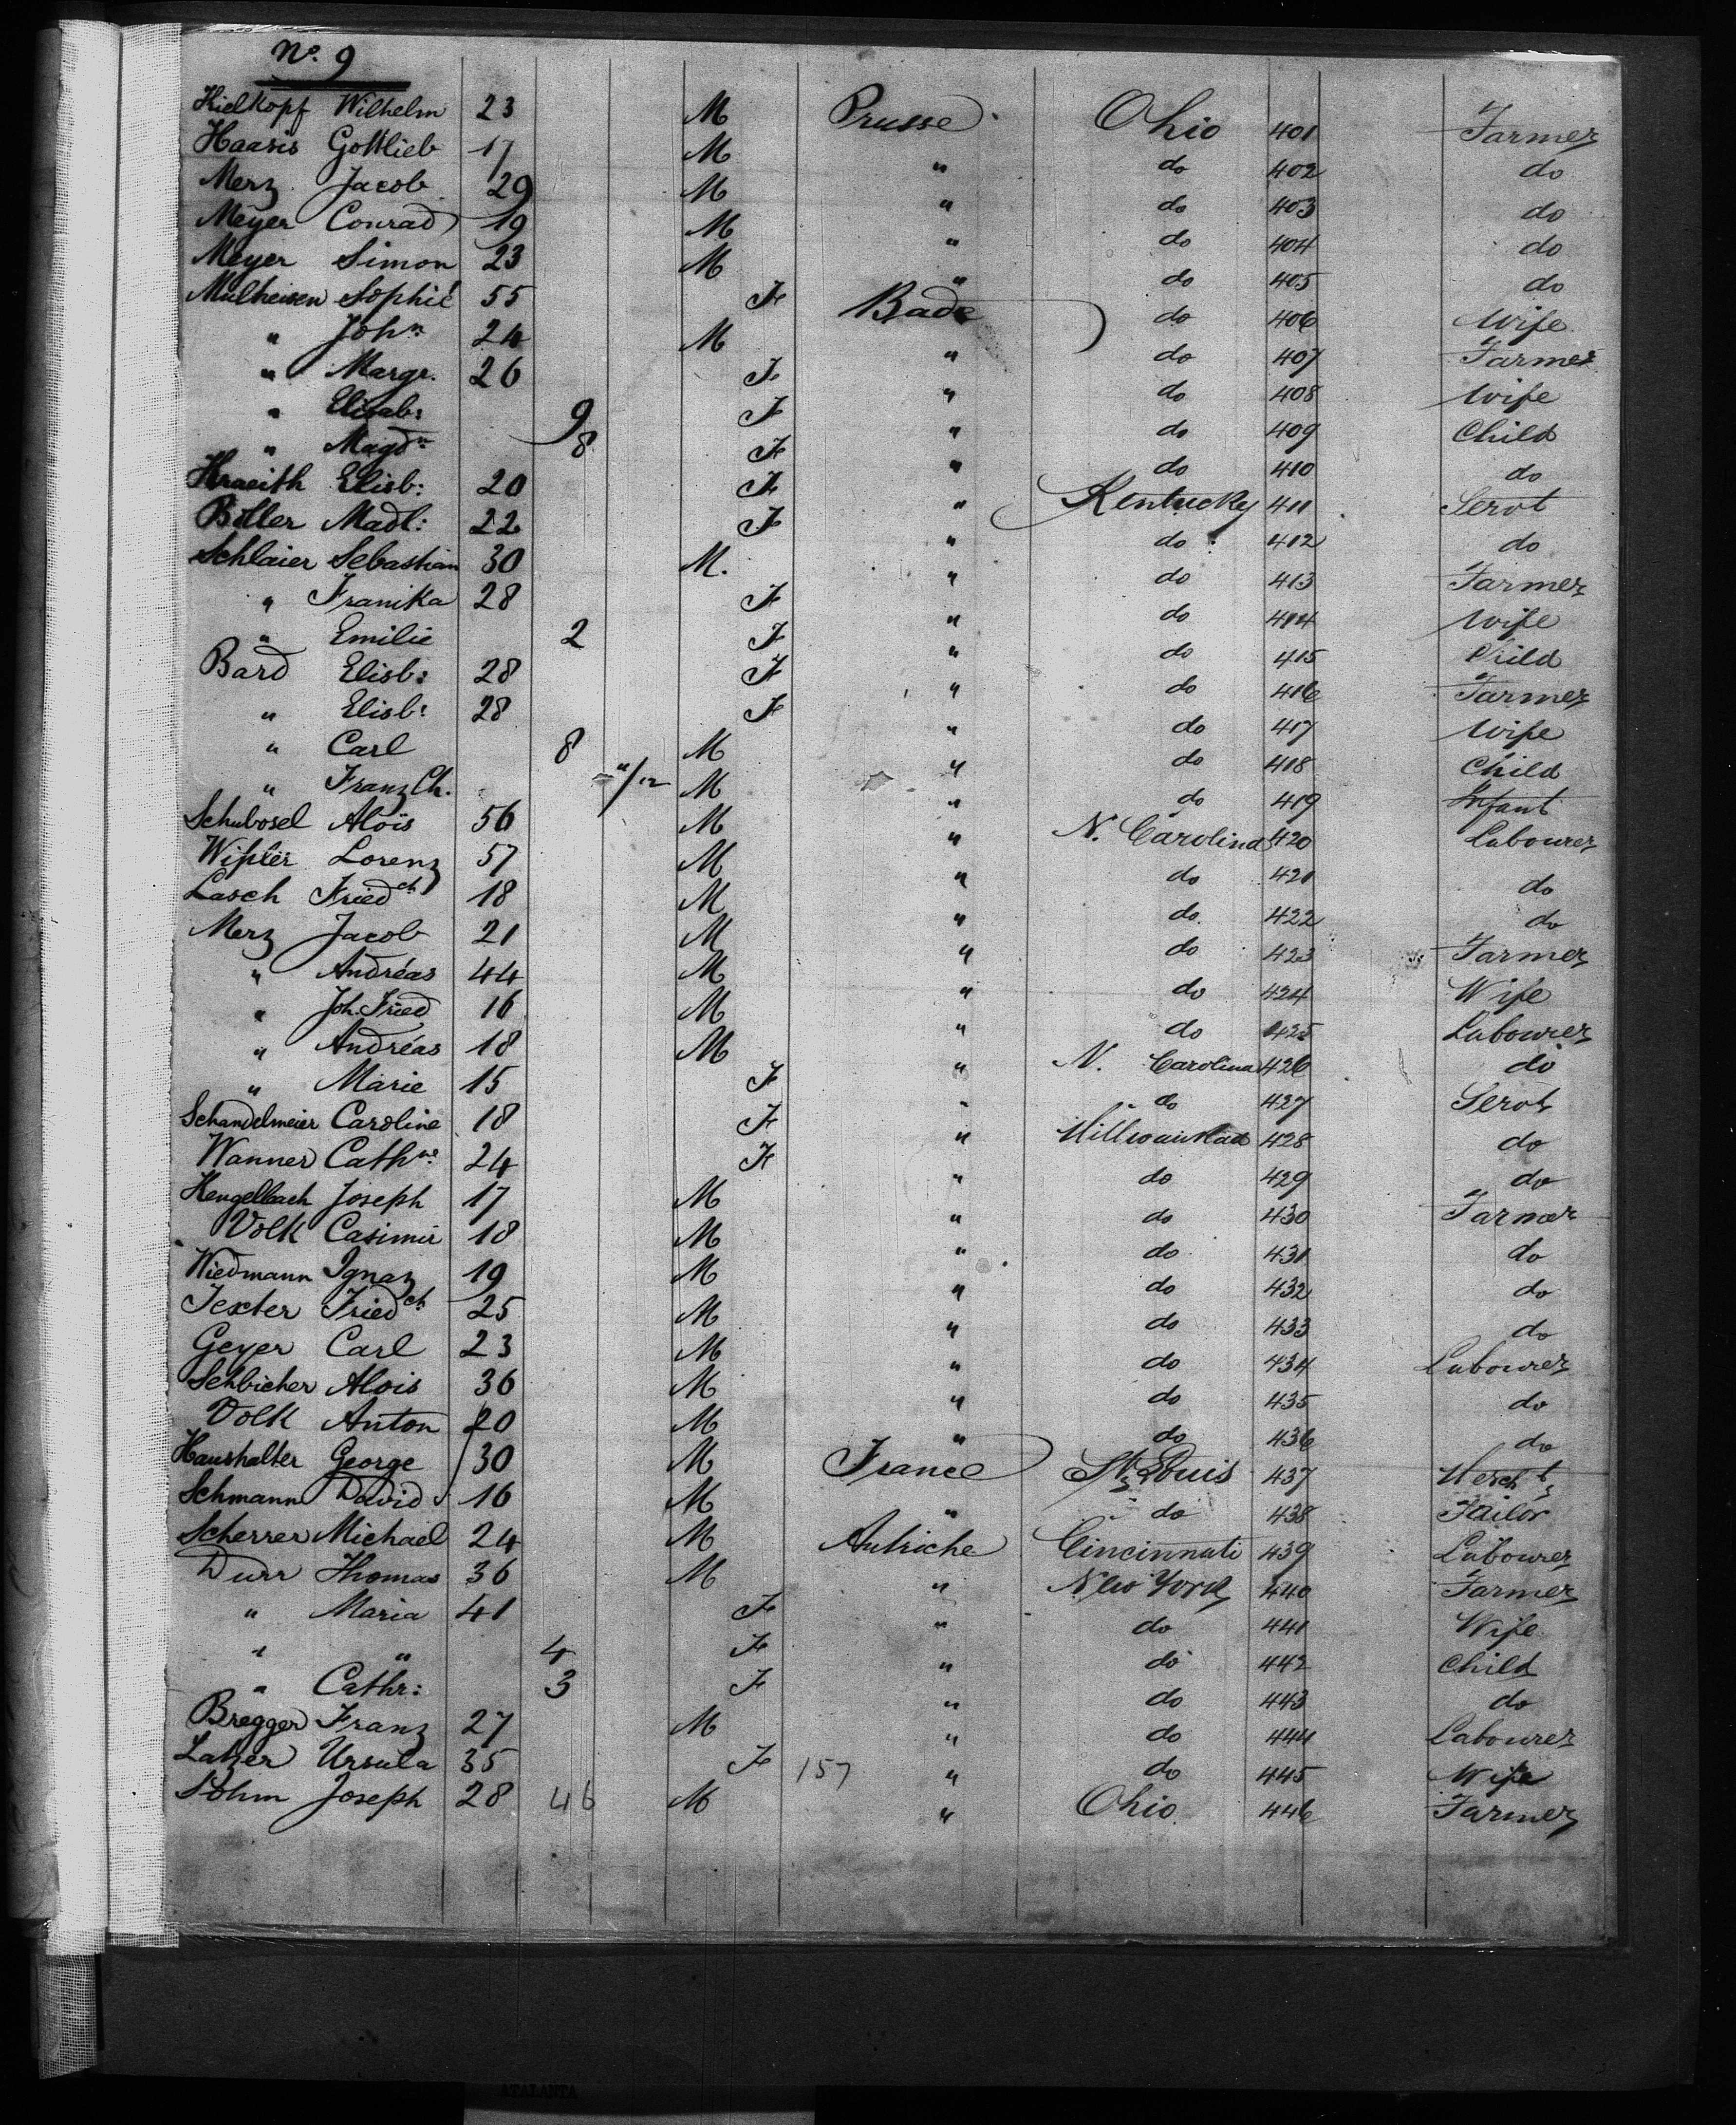 No. 9
Kielkopf Wilhelm 23 M Prusse Ohio 401 Farmer
Haasis Gottlieb 17 M " do 402 do
Merz Jacob 29 M " do 403 do
Meyer Conrad 19 M " do 404 do
Meyer Simon 23 M " do 405 do
Mülheisen Sophie 55 F Bade do 406 Wife
" John 24 M " do 407 Farmer
" Margr. 26 F " do 408 Wife
" Elisab: 9 F " do 409 Child
" Magdn 8 F " do 410 do
Kraeith Elisb: 20 F " Kentucky 411 Servt
Biller Madl: 22 F " do 412 do
Schlaier Sebastian 30 M. " do 413 Farmer
" Franika 28 F " do 414 Wife
" Emilie 2 F " do 415 Child
Bard Elisb: 28 F " do 416 Farmer
" Elisb: 28 F " do 417 Wife
" Carl 8 M " do 418 Child
" Franz Ch. 11/12 M " do 419 Infant
Schubosel Aloïs 56 M " N. Carolina 420 Labourer
Lorenz 57 M " do 421 do
Lasch Friedch 18 M " do 422 do
Merz Jacob 21 M " do 423 Farmer
" Andréas 44 M " do 424 Wife
" Joh. Fried 16 M " do 425 Labourer
" Andréas 18 M " N. Carolina 426 do
" Marie 15 F " do 427 Servt
Schandelmeier Caroline 18 F " 428 do
Wanner Cathne 24 F " do 429 do
Hengelbach Joseph 17 M " do 430 Farmer
Volk Casimir 18 M " do 431 do
Wiedmann Ignaz 19 M " do 432 do
Texter Friedch 25 M " do 433 do
Geyer Carl 23 M " do 434 Labourer
Schbicher Alois 36 M " do 435 do
Volk Anton 20 M " do 436 do
Haushalter George 30 M France St Louis 437 Mercht
Schmann David 16 M " do 438 Tailor
Scherrer Michael 24 M Autriche Cincinnati 439 Labourer
Durr Thomas 36 M " New York 440 Farmer
" Maria 41 F " do 441 Wife
" " 4 F " do 442 Child
" Cathr: 3 F " do 443 do
Bregger Franz 27 M " do 444 Labourer
Latzer Ursula 35 F 157 " do 445 Wife
Böhm Joseph 28 46 M " Ohio 446 Farmer
ATALANTA